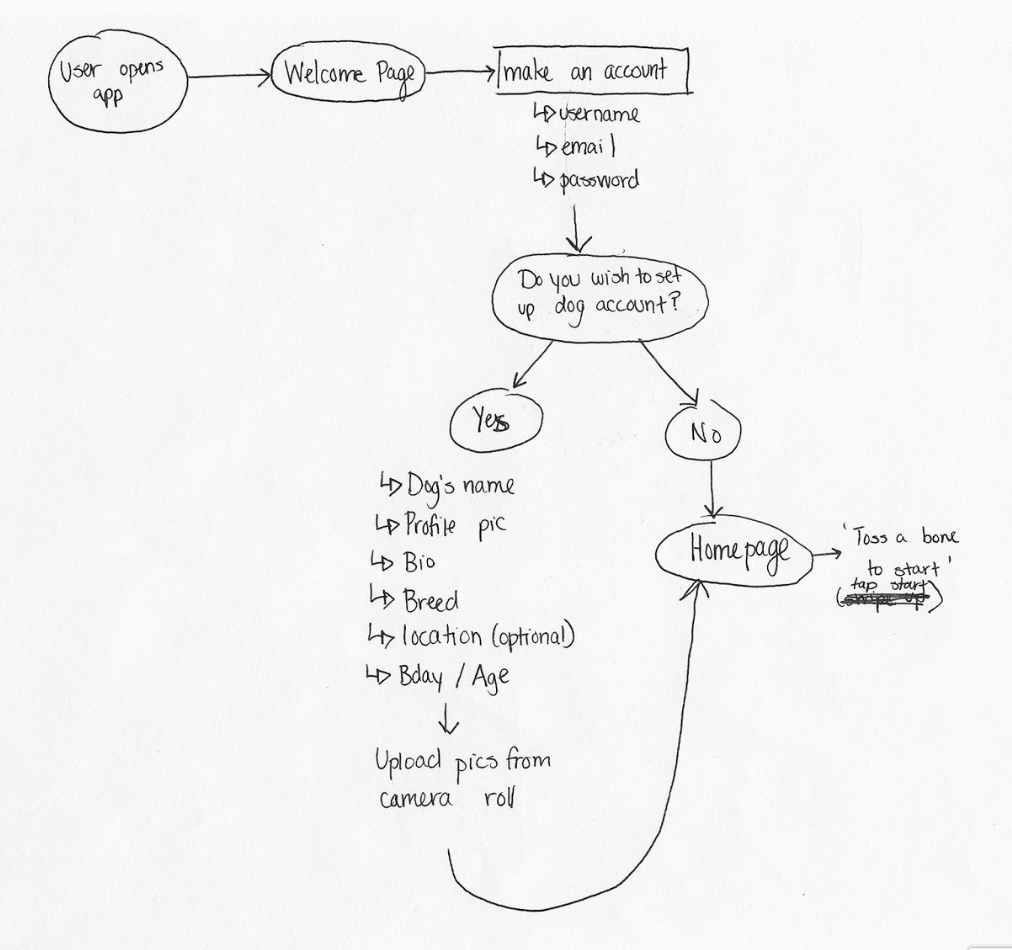 User opens
app
Welcome Page
make an account
↳ username
↳ email
↳ password
Do you wish to set
up dog account?
Yes
No
↳ Dog's name
↳ Profile pic
↳ Bio
↳ Breed
↳ location (optional)
↳ Bday / Age
Upload pics from
camera roll
Homepage
'Toss a bone
to start'
tap start
(swipe up)